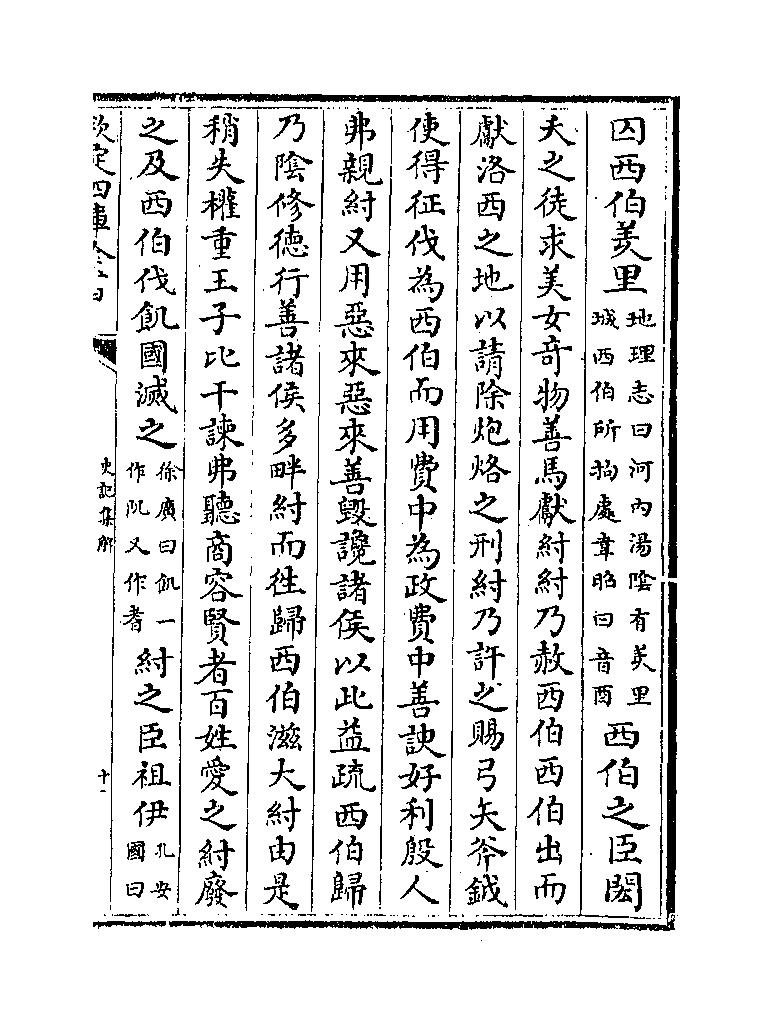 囚西伯羑里地理志曰河內湯隂有羑里城西伯所拘處韋昭曰音酉西伯之臣閎
夭之徒求美女竒物善馬獻紂紂乃赦西伯西伯出而
獻洛西之地以請除炮烙之刑紂乃許之賜弓矢斧鉞
使得征伐為西伯而用費中為政費中善諛好利殷人
弗親紂又用惡來惡來善毁讒諸侯以此益疏西伯歸
乃隂修德行善諸侯多畔紂而徃歸西伯滋大紂由是
稍失權重王子比干諫弗聽商容賢者百姓愛之紂廢
之及西伯伐飢國滅之徐廣曰飢一作𨸔又作耆紂之臣祖伊孔安國曰
欽定四庫全書
史記集解
十一